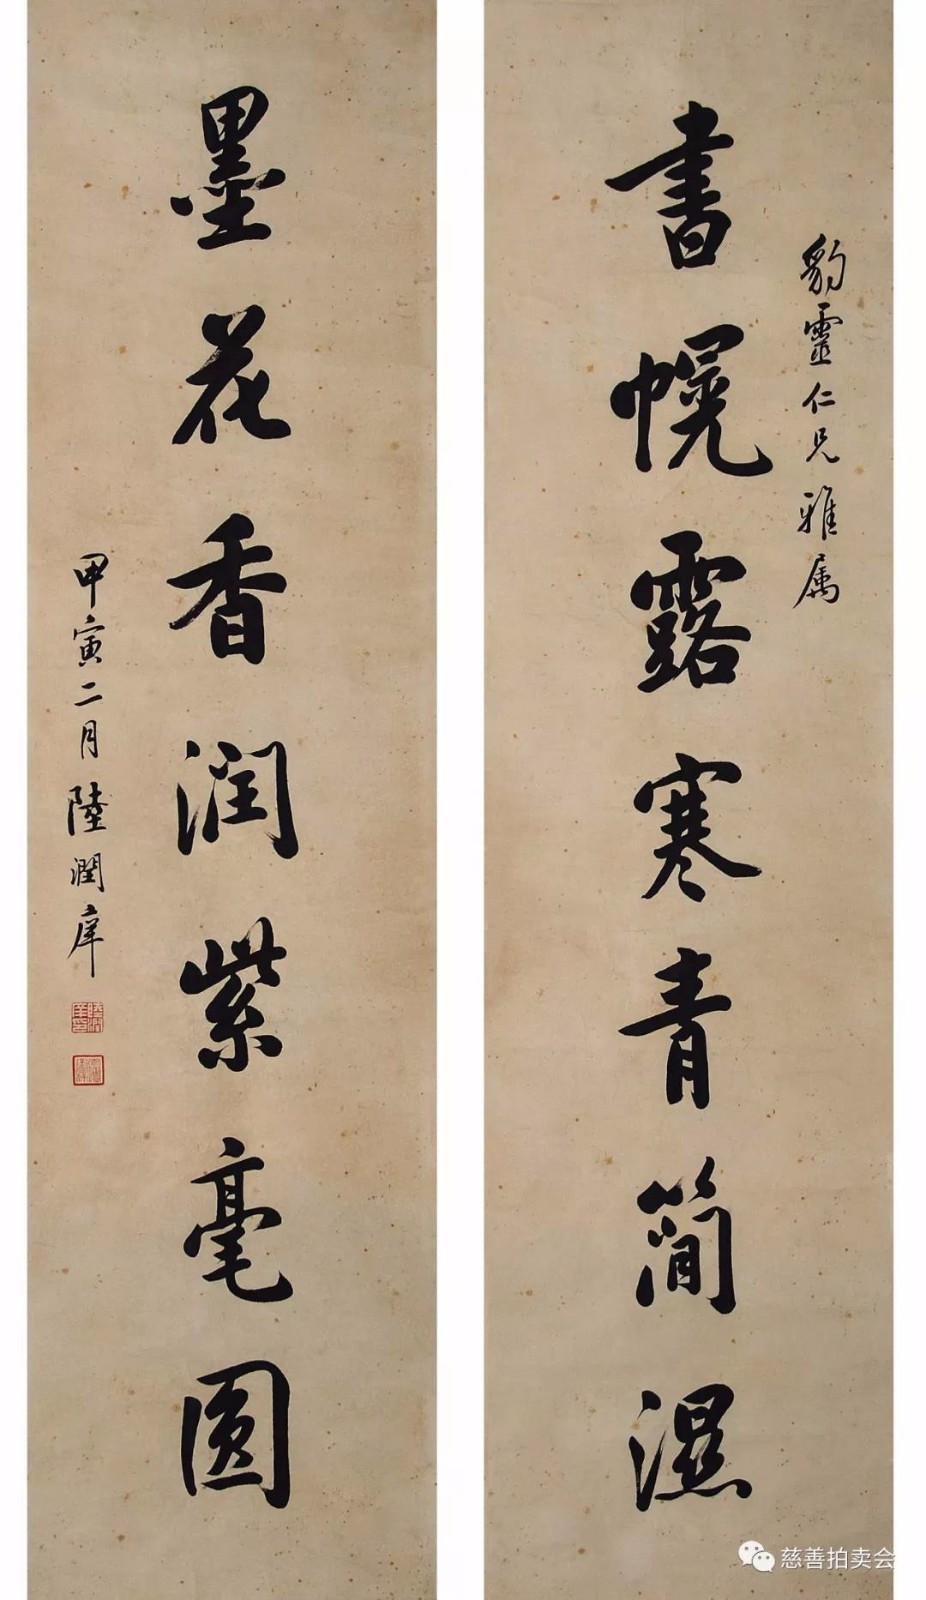 豹靈仁兄雅属
書幌露寒青簡濕
墨花香润紫毫圓
甲寅二月陸潤庠
慈善拍卖会